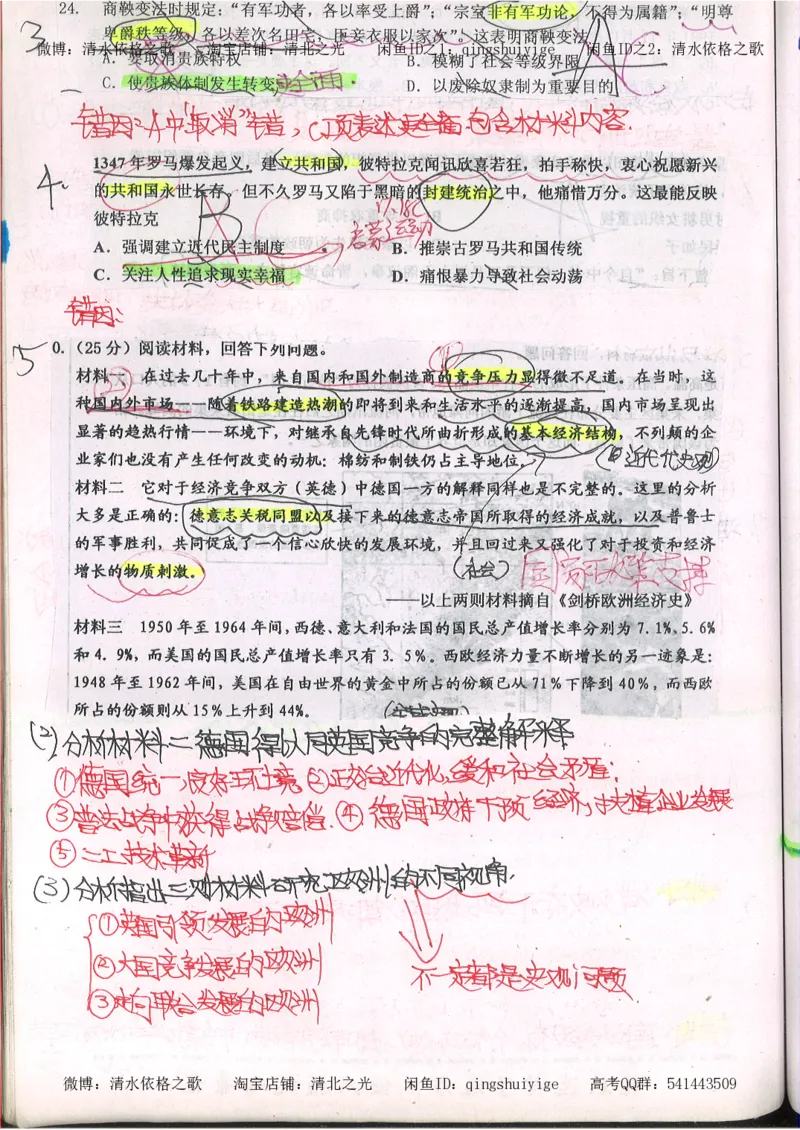 24. 商鞅变法时规定：“有军功者，各以率受上爵”；“宗室非有军功论，不得为属籍”；“明尊
3
卑爵秩等级，各以差次名田宅，臣妾衣服以家次”。这表明商鞅变法
微博：清水依格之歌 淘宝店铺：清北之光 闲鱼ID之1：qingshuiyige 闲鱼ID之2：清水依格之歌
A. 要取消贵族特权 B. 模糊了社会等级界限
C. 使贵族体制发生转变 D. 以废除奴隶制为重要目的
错因：A中“取消”错，C项表述更全面，包含材料内容．
4.
1347年罗马爆发起义，建立共和国，彼特拉克闻讯欣喜若狂，拍手称快，衷心祝愿新兴
的共和国永世长存。但不久罗马又陷于黑暗的封建统治之中，他痛惜万分。这最能反映
彼特拉克
B
17、18C
启蒙运动
A．强调建立近代民主制度 B．推崇古罗马共和国传统
C．关注人性追求现实幸福 D．痛恨暴力导致社会动荡
错因：
5
0. （25分）阅读材料，回答下列问题。
材料一 在过去几十年中，来自国内和国外制造商的竞争压力显得微不足道。在当时，这
种国内外市场——随着铁路建造热潮的即将到来和生活水平的逐渐提高，国内市场呈现出
显著的趋热行情——环境下，对继承自先锋时代所曲折形成的基本经济结构，不列颠的企
业家们也没有产生任何改变的动机：棉纺和制铁仍占主导地位。
材料二 它对于经济竞争双方（英德）中德国一方的解释同样也是不完整的。这里的分析
大多是正确的：德意志关税同盟以及接下来的德意志帝国所取得的经济成就，以及普鲁士
的军事胜利，共同促成了一个信心欣快的发展环境，并且回过来又强化了对于投资和经济
增长的物质刺激。
(社会)
国家政策支持
——以上两则材料摘自《剑桥欧洲经济史》
材料三 1950年至1964年间，西德、意大利和法国的国民总产值增长率分别为7.1%、5.6%
和4.9%，而美国的国民总产值增长率只有3.5%。西欧经济力量不断增长的另一迹象是：
1948年至1962年间，美国在自由世界的黄金中所占的份额已从71%下降到40%，而西欧
所占的份额则从15%上升到44%。
(2) 分析材料二德国得以同英国竞争的完整解释
①德国统一良好环境 ②政治近代化，缓和社会矛盾；
③普法战争中获得战争赔偿．④德国政府干预经济，扶植企业发展
⑤二工技术革新
(3) 分析指出三则材料研究欧洲的不同视角．
①英国引领发展的欧洲
②大国竞争发展的欧洲
③走向联合发展的欧洲
不一定都是史观问题
微博：清水依格之歌 淘宝店铺：清北之光 闲鱼ID：qingshuiyige 高考QQ群：541443509